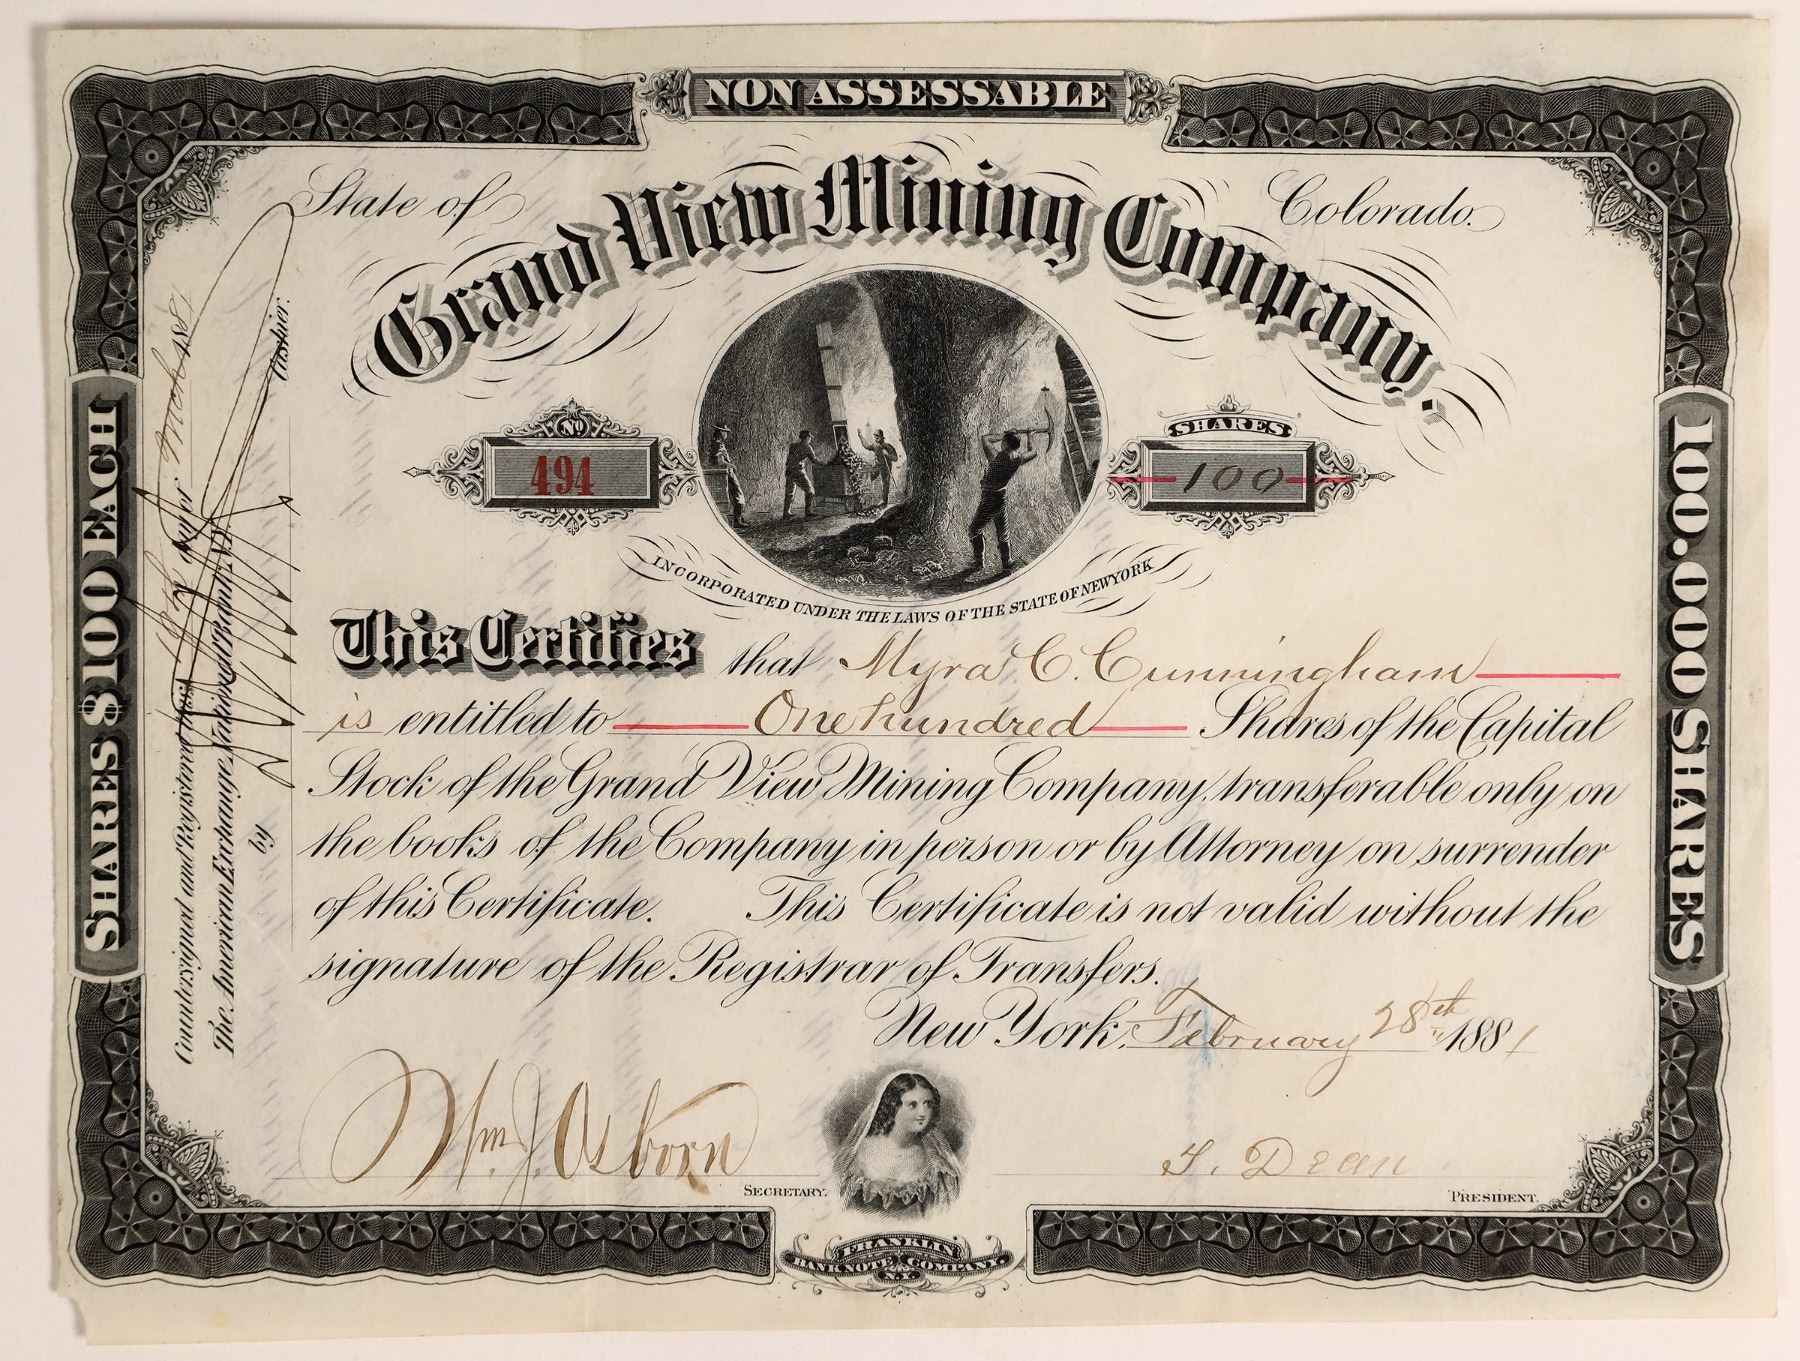 NON ASSESSABLE
State of Colorado.
Grand View Mining Company.
No 494
SHARES 100
INCORPORATED UNDER THE LAWS OF THE STATE OF NEW YORK
This Certifies that Myra C. Cunningham
is entitled to One hundred Shares of the Capital
Stock of the Grand View Mining Company, transferable only on
the books of the Company in person or by Attorney on surrender
of this Certificate. This Certificate is not valid without the
signature of the Registrar of Transfers.
New York, February 28th 1881
Wm. J. Osborn
SECRETARY.
T. Dean
PRESIDENT.
FRANKLIN
BANK NOTE COMPANY
N.Y.
SHARES $100 EACH
100.000 SHARES
Countersigned and Registered this day of Mch 1881
The American Exchange National Bank N.Y.
by Cashier.